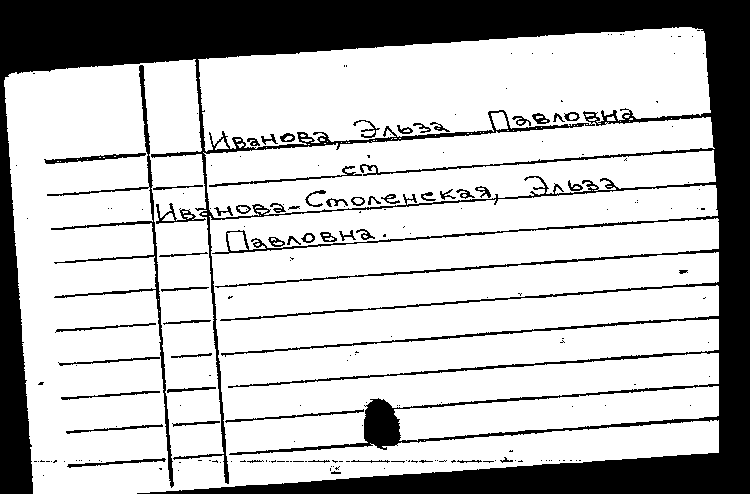 Иванова, Эльза Павловна
ст
Иванова-Столенская, Эльза
Павловна.